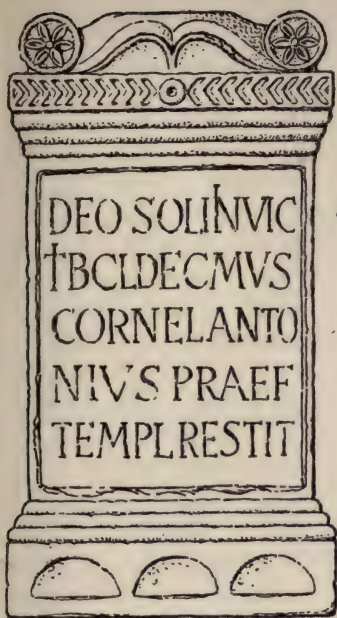 DEO SOLINVIC
TIBCLDECMVS
CORNELANTO
NIVS PRAEF
TEMPLRESTIT